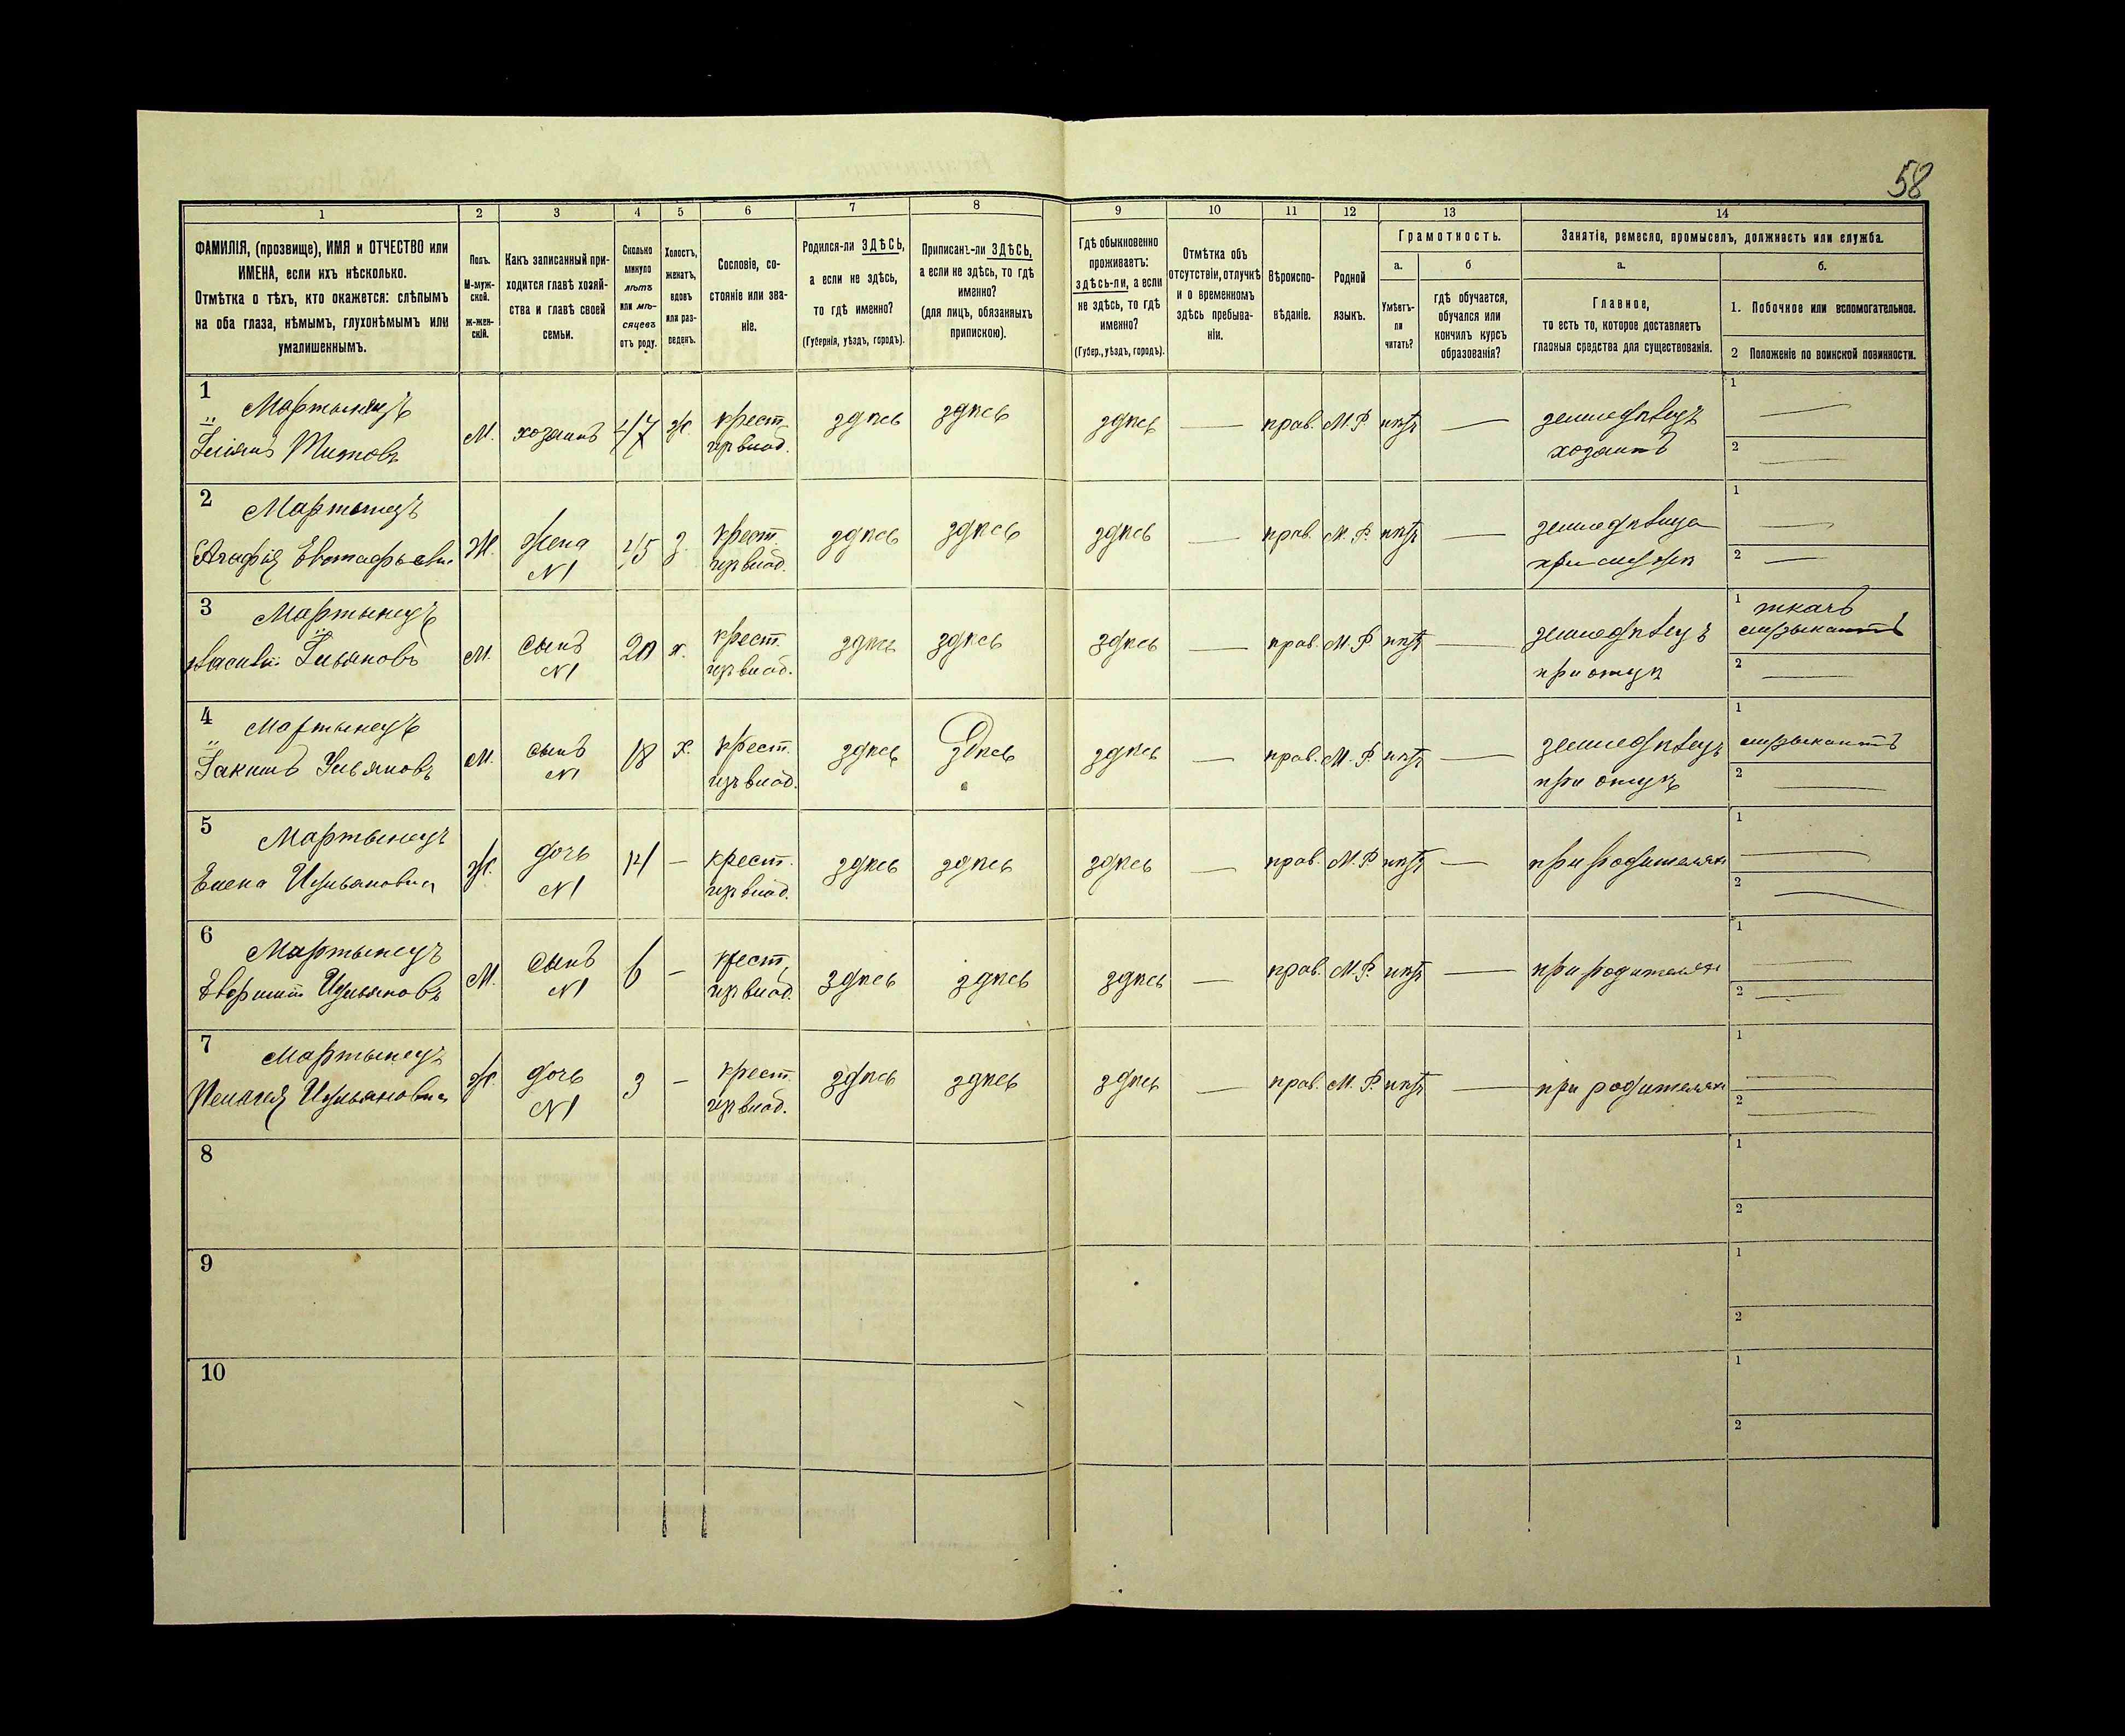 58
1 2 3 4 5 6 7 8 9 10 11 12 13 14
ФАМИЛІЯ, (прозвище), ИМЯ и ОТЧЕСТВО или
ИМЕНА, если ихъ нѣсколько.
Отмѣтка о тѣхъ, кто окажется: слѣпымъ
на оба глаза, нѣмымъ, глухонѣмымъ или
умалишеннымъ.
Полъ.
М-муж-
ской.
ж-жен-
скій.
Какъ записанный при-
ходится главѣ хозяй-
ства и главѣ своей
семьи.
Сколько
минуло
лѣтъ
или мѣ-
сяцевъ
отъ роду.
Холостъ,
женатъ,
вдовъ
или раз-
веденъ.
Сословіе, со-
стояніе или зва-
ніе.
Родился-ли ЗДѢСЬ,
а если не здѣсь,
то гдѣ именно?
(Губернія, уѣздъ, городъ).
Приписанъ-ли ЗДѢСЬ,
а если не здѣсь, то гдѣ
именно?
(для лицъ, обязанныхъ
припискою).
Гдѣ обыкновенно
проживаетъ:
здѣсь-ли, а если
не здѣсь, то гдѣ
именно?
(Губер., уѣздъ, городъ).
Отмѣтка объ
отсутствіи, отлучкѣ
и о временномъ
здѣсь пребыва-
ніи.
Вѣроиспо-
вѣданіе.
Родной
языкъ.
Грамотность.
а.
Умѣетъ-
ли
читать?
б
гдѣ обучается,
обучался или
кончилъ курсъ
образованія?
Занятіе, ремесло, промыселъ, должность или служба.
а.
Главное,
то есть то, которое доставляетъ
главныя средства для существованія.
б.
1. Побочное или вспомогательное.
2 Положеніе по воинской повинности.
1 Мартынецъ
Титовъ М. хозяинъ 47 ж. крест. здѣсь здѣсь здѣсь — прав. М.Р. нѣтъ — земледѣлецъ
хозяинъ
1 —
2 —
2 Мартынецъ
Агафія Евстафьевна Ж. жена 45 з. крест. здѣсь здѣсь здѣсь — прав. М.Р. нѣтъ — земледѣлица
N1 при мужѣ
1 —
2 —
3 Мартынецъ
М. сынъ 20 х. крест. здѣсь здѣсь здѣсь — прав. М.Р. нѣтъ — земледѣлецъ
N1 при отцѣ
1 ткачъ
музыкантъ
2 —
4 Мартынецъ
М. сынъ 18 х. крест. здѣсь здѣсь здѣсь — прав. М.Р. нѣтъ — земледѣлецъ
N1 при отцѣ
1 музыкантъ
2 —
5 Мартынецъ
Елена Ж. дочь 14 — крест. здѣсь здѣсь здѣсь — прав. М.Р. нѣтъ — при родителяхъ
N1
1 —
2 —
6 Мартынецъ
М. сынъ 6 — крест. здѣсь здѣсь здѣсь — прав. М.Р. нѣтъ — при родителяхъ
N1
1 —
2 —
7 Мартынецъ
Ж. дочь 3 — крест. здѣсь здѣсь здѣсь — прав. М.Р. нѣтъ — при родителяхъ
N1
1 —
2 —
8
1
2
9
1
2
10
1
2